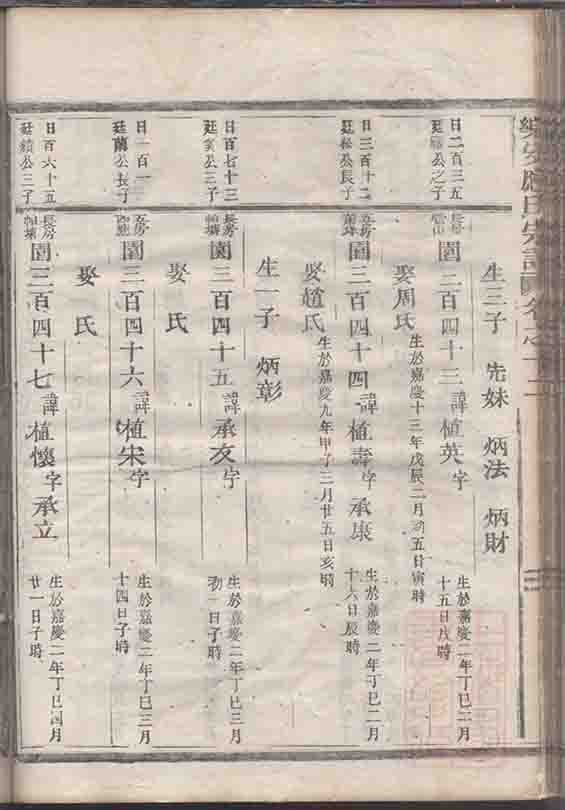 應氏宗譜 卷之十二
生三子 先妹 炳法 炳財
日二百三五
廷 公之子
長房
園三百四十三 諱植英字
生於嘉慶二年丁巳二月
十五日戌時
娶周氏 生於嘉慶十三年戊辰二月初五日寅時
日三百十二
廷松公長子
園三百四十四 諱植壽字承康
生於嘉慶二年丁巳二月
十六日辰時
娶趙氏 生於嘉慶九年甲子三月廿五日亥時
生一子 炳彰
日百七十三
廷 公三子
長房
園三百四十五 諱承友字
生於嘉慶二年丁巳三月
初一日子時
娶氏
日一百一三
廷蘭公長子
園三百四十六 諱植宋字
生於嘉慶二年丁巳三月
十四日子時
娶氏
日百六十五
廷 公三子
長房
園三百四十七 諱植懷字承立
生於嘉慶二年丁巳四月
廿一日子時